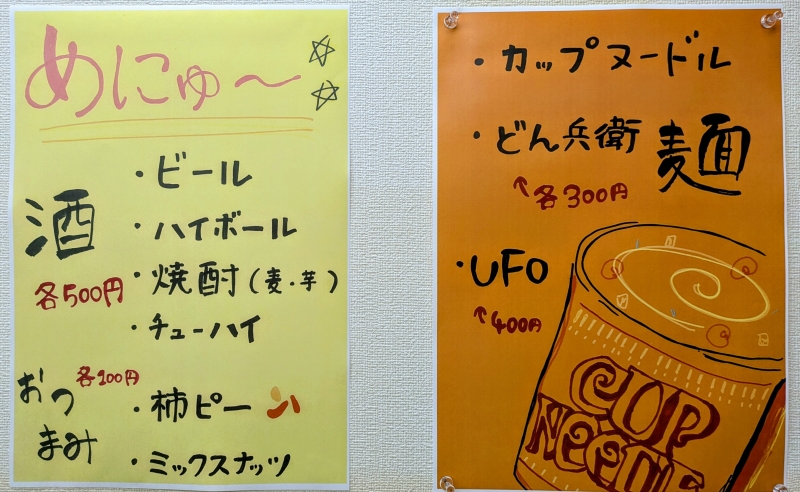 めにゅ〜
酒
各500円
・ビール
・ハイボール
・焼酎(麦・芋)
・チューハイ
おつまみ
各200円
・柿ピー
・ミックスナッツ
・カップヌードル
・どん兵衛
麺
↑各300円
・UFO
↑400円
CUP
NOODL